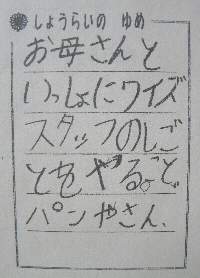 しょうらいの ゆめ
お母さんと
いっしょにワイズ
スタッフのしご
とをやる。と、
パンやさん、